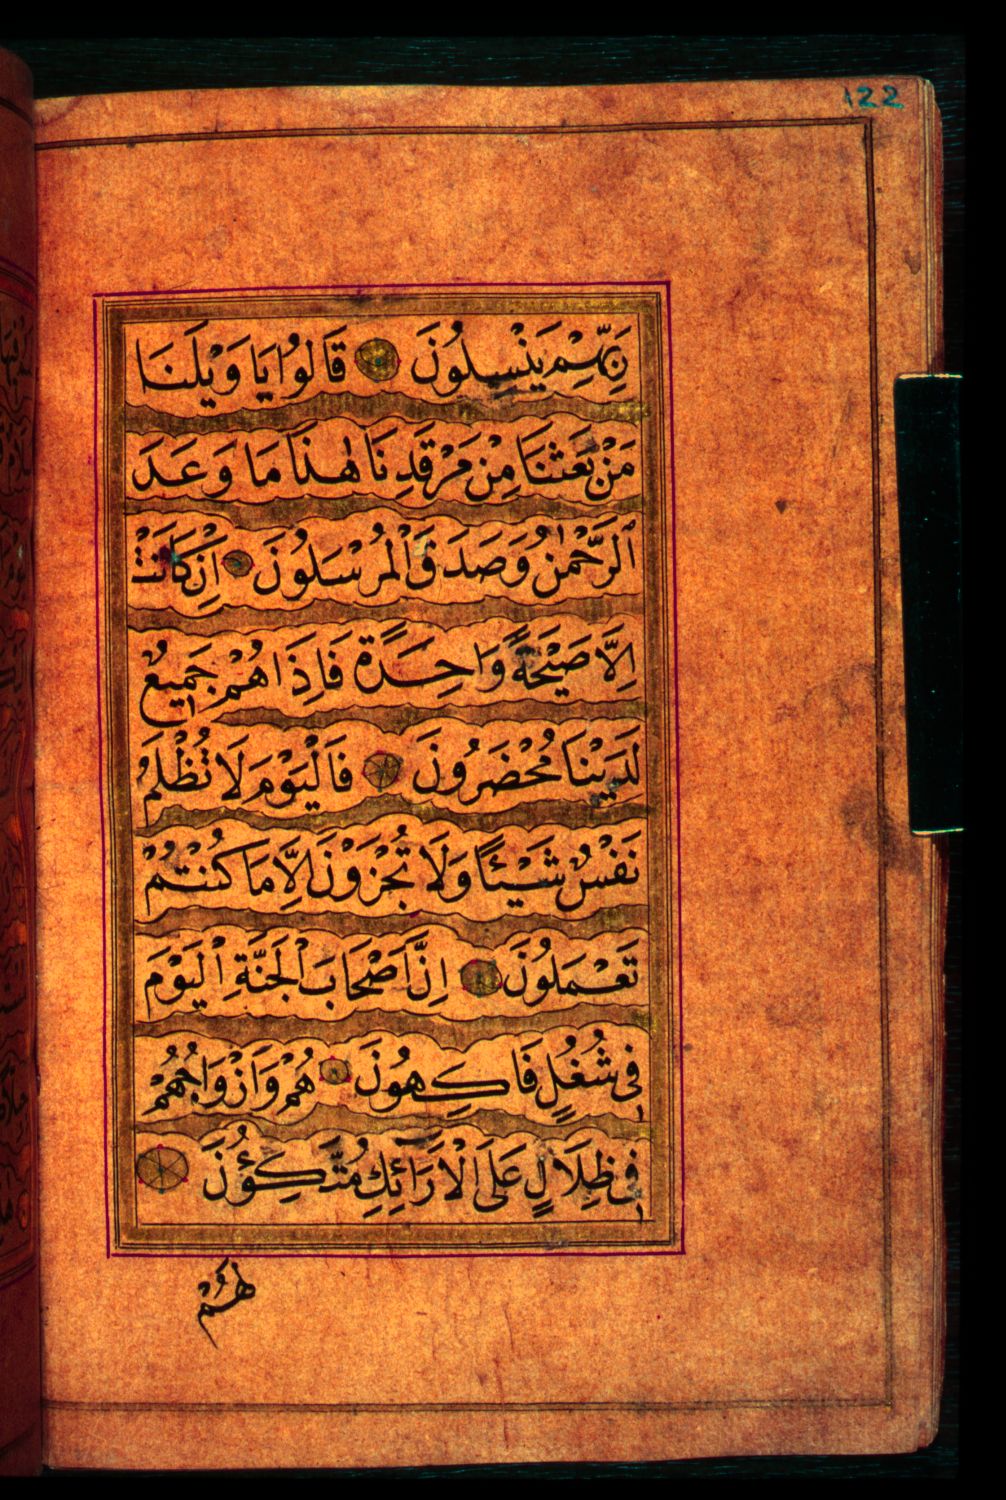 122
رَبِّهِمْ يَنْسِلُونَ قَالُوا يَا وَيْلَنَا
مَنْ بَعَثَنَا مِنْ مَرْقَدِنَا هٰذَا مَا وَعَدَ
الرَّحْمٰنُ وَصَدَقَ الْمُرْسَلُونَ اِنْ كَانَتْ
اِلَّا صَيْحَةً وَاحِدَةً فَاِذَا هُمْ جَمِيعٌ
لَدَيْنَا مُحْضَرُونَ فَالْيَوْمَ لَا تُظْلَمُ
نَفْسٌ شَيْئًا وَلَا تُجْزَوْنَ اِلَّا مَا كُنْتُمْ
تَعْمَلُونَ اِنَّ اَصْحَابَ الْجَنَّةِ الْيَوْمَ
فِي شُغُلٍ فَاكِهُونَ هُمْ وَاَزْوَاجُهُمْ
فِي ظِلَالٍ عَلَى الْاَرَائِكِ مُتَّكِؤُنَ
لَهُمْ